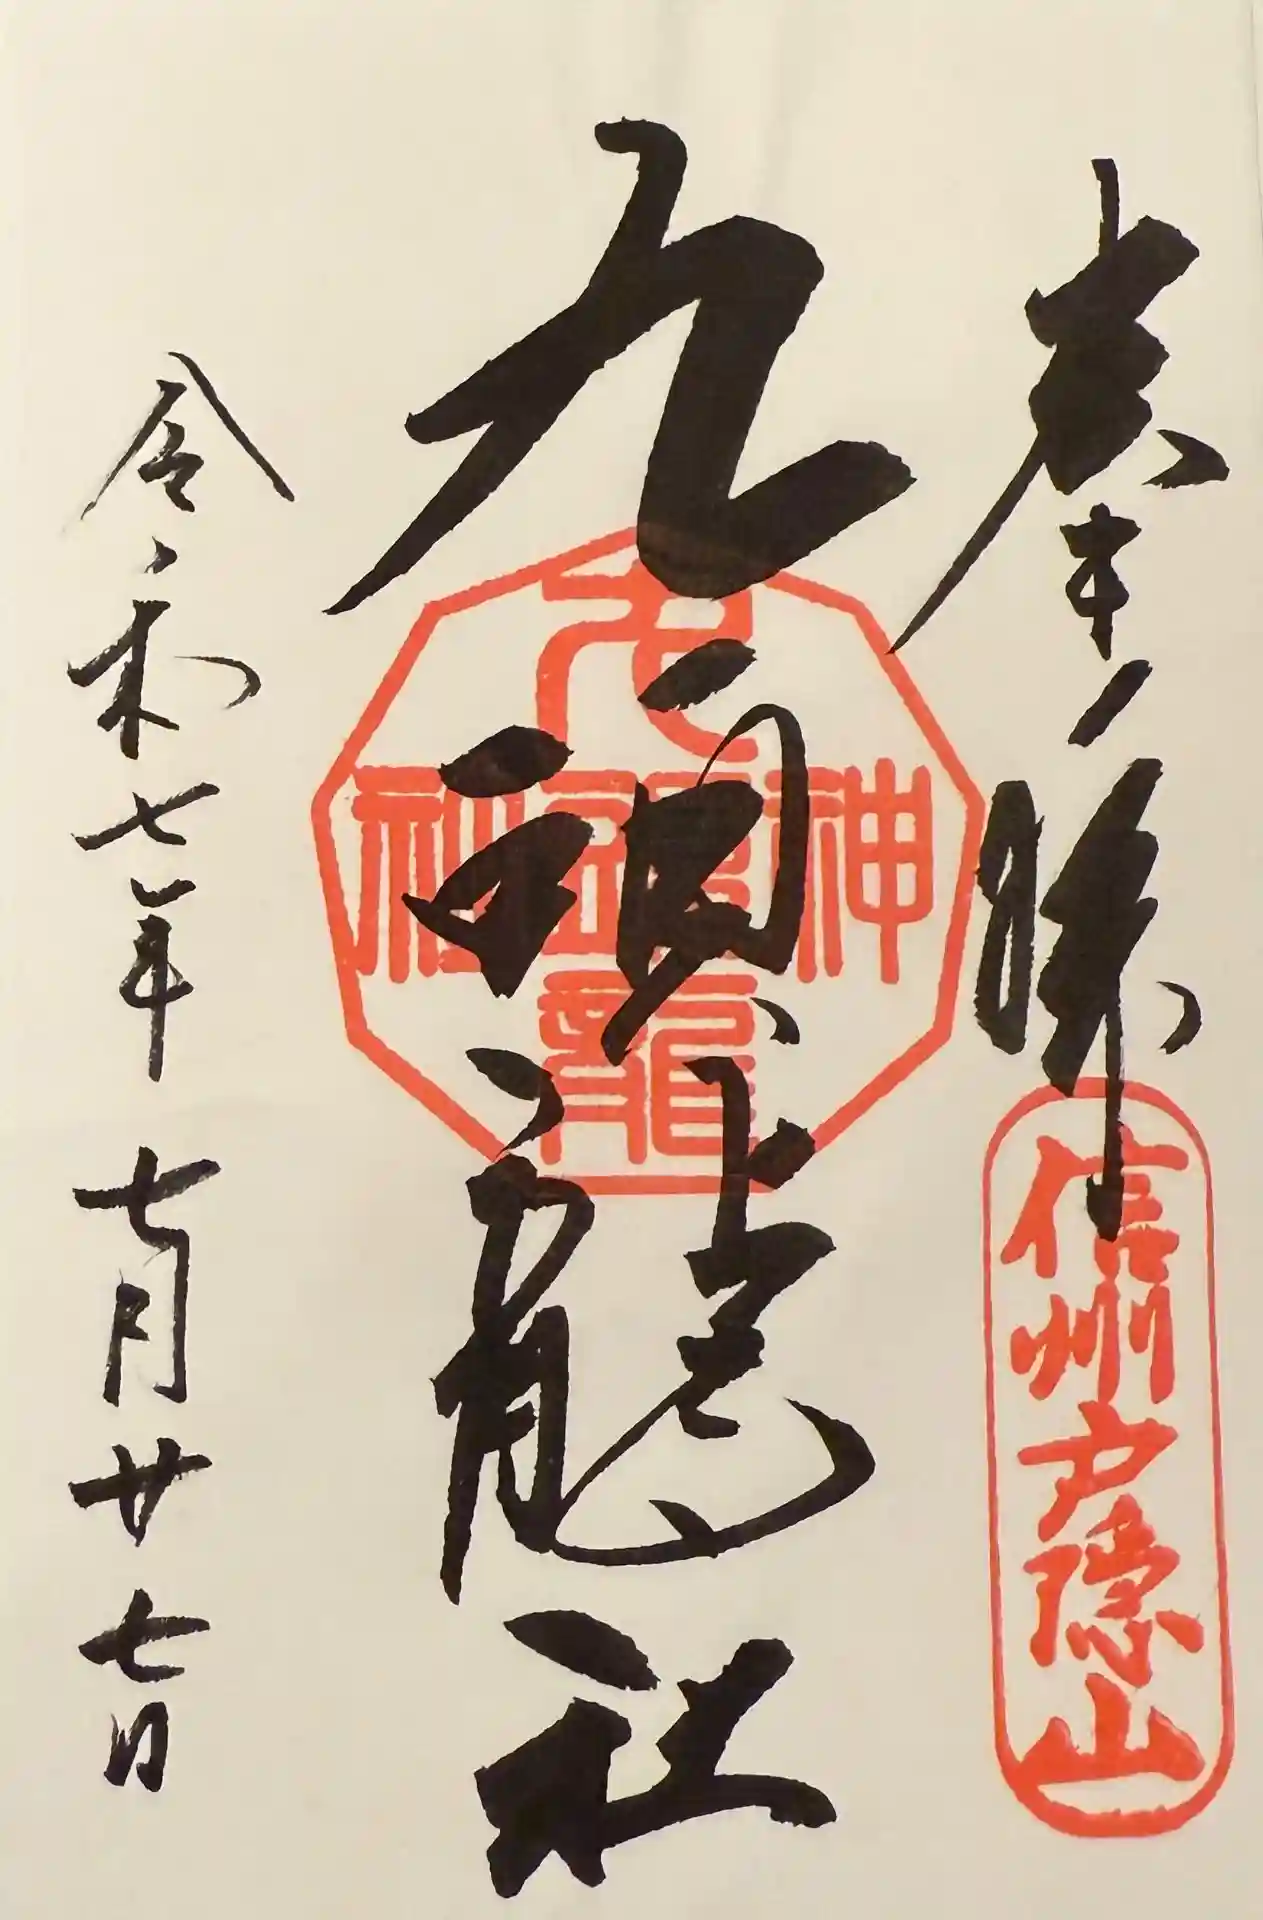 奉拝
信州戸隠山
九頭龍社
九頭龍神社
令和七年七月廿七日